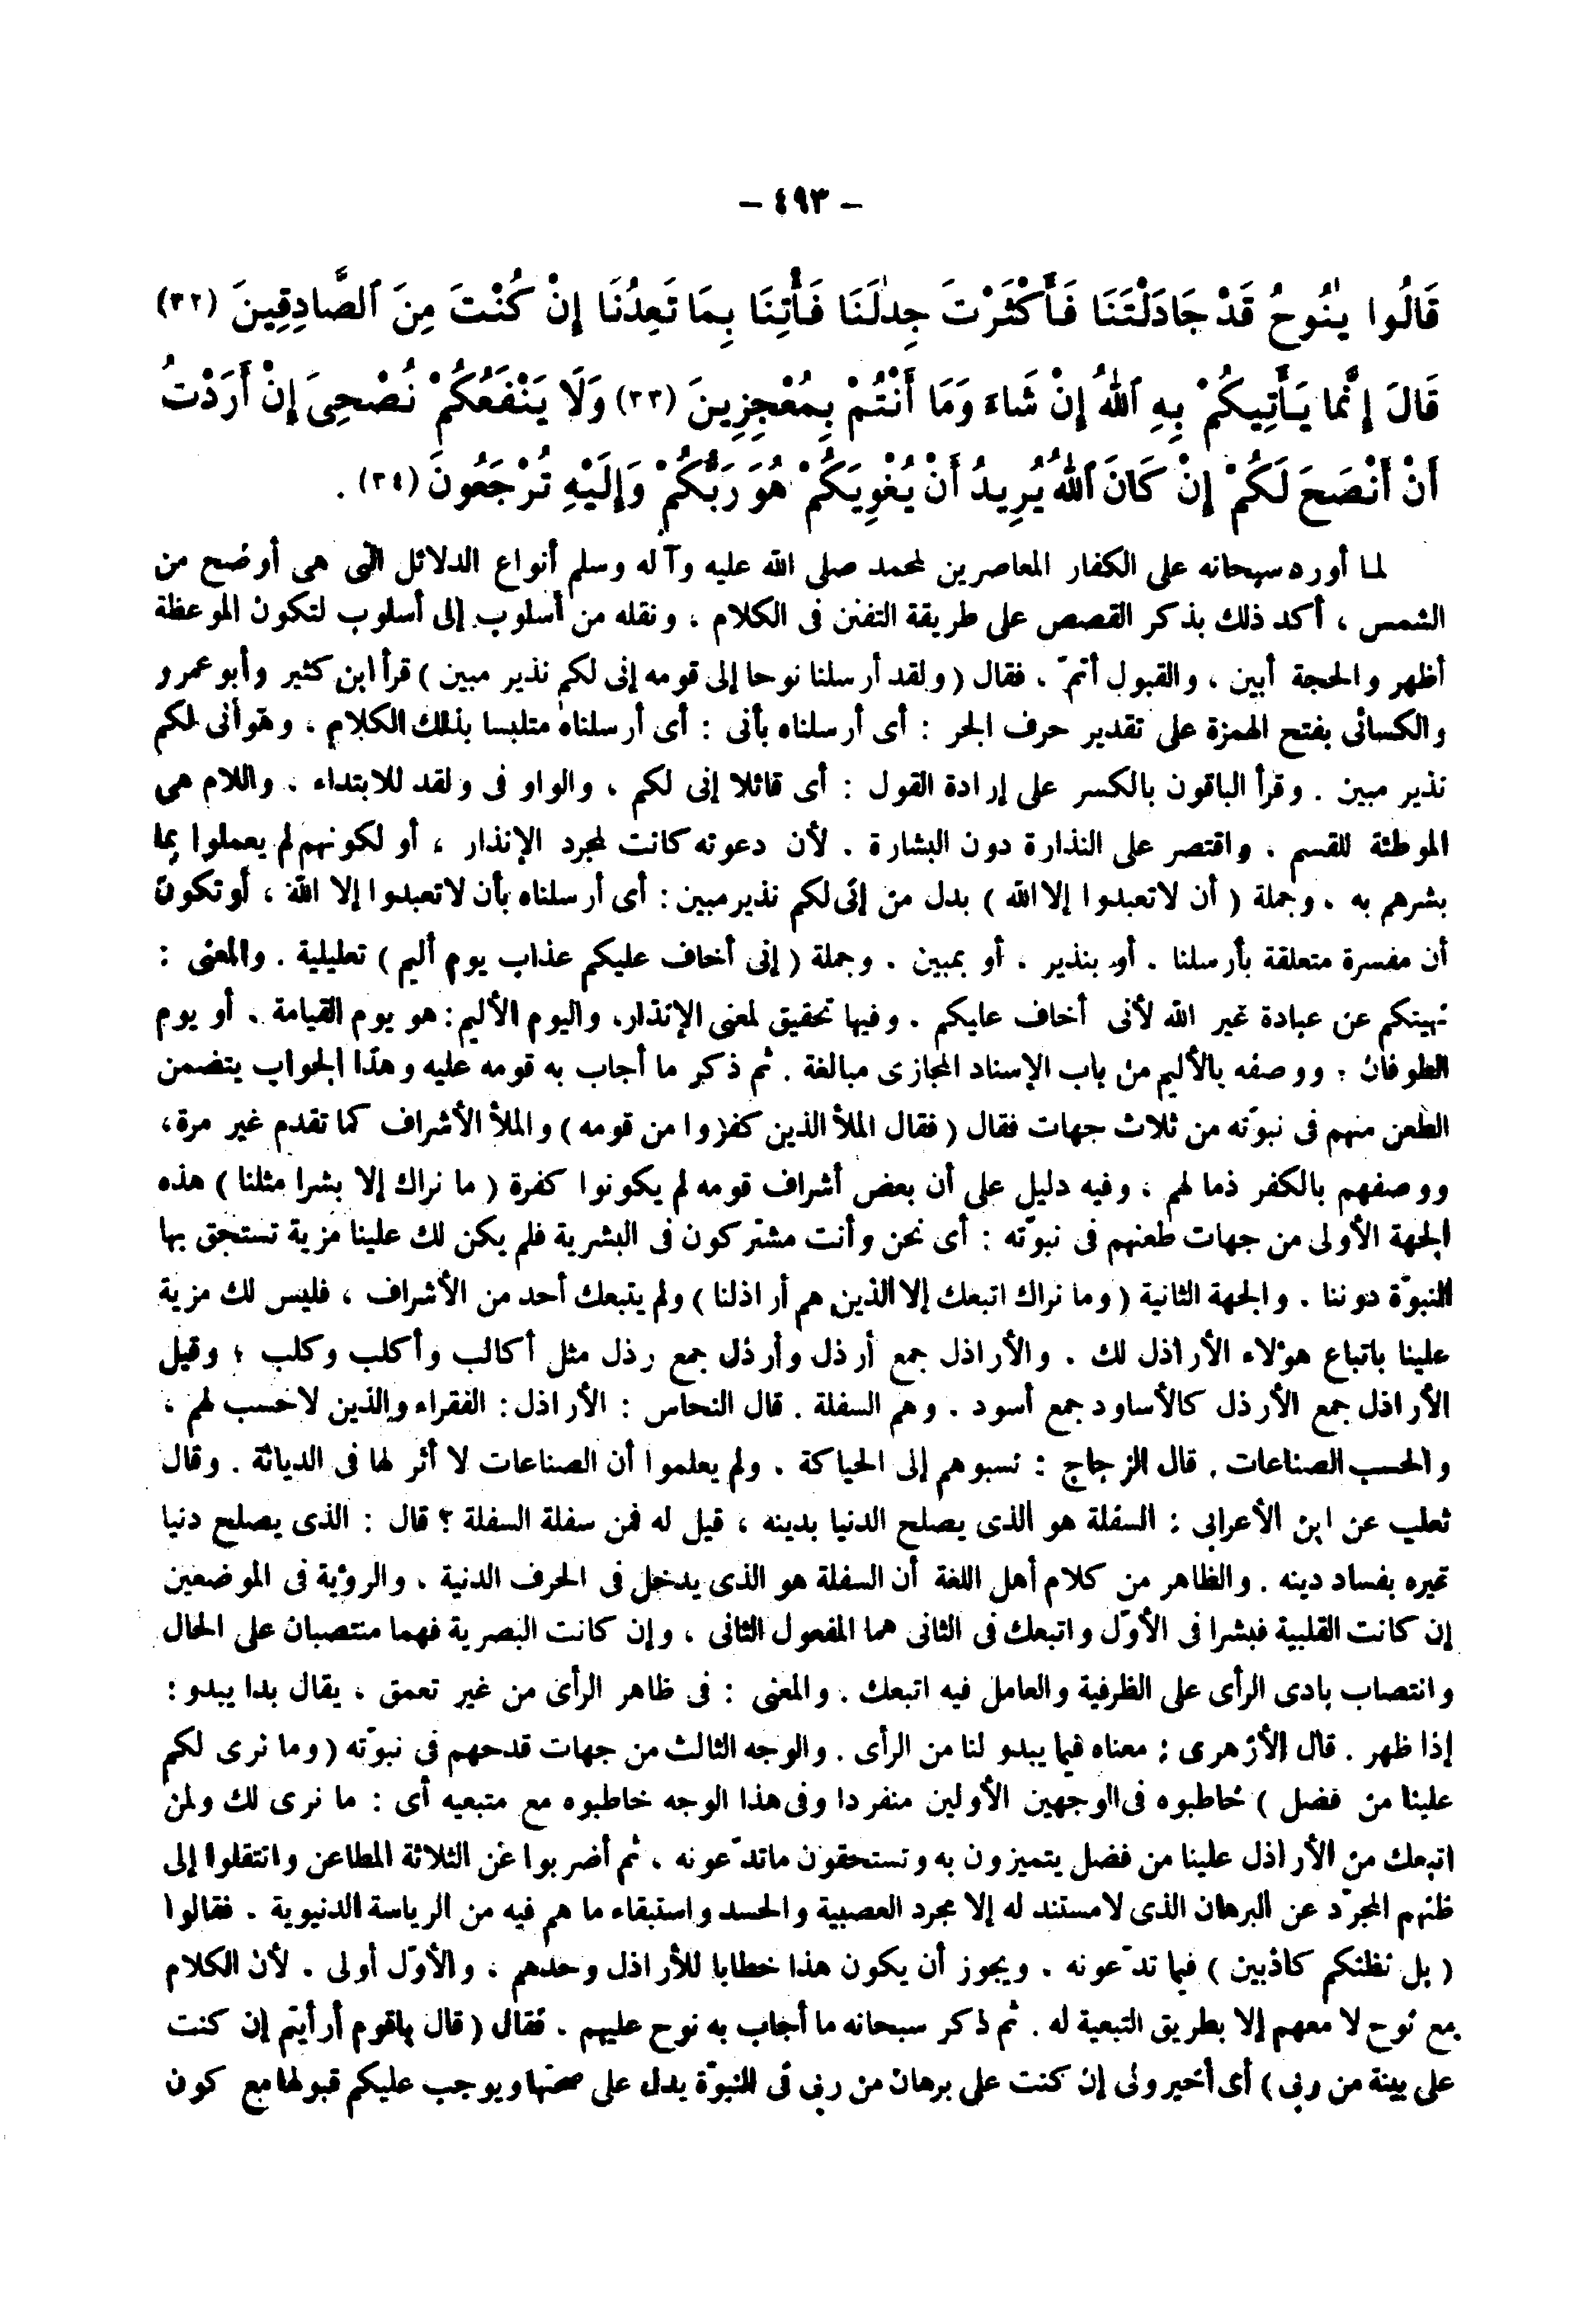 – ٤٩٣ –
قَالُوا يٰنُوحُ قَدْ جَادَلْتَنَا فَأَكْثَرْتَ جِدٰلَنَا فَأْتِنَا بِمَا تَعِدُنَا إِنْ كُنْتَ مِنَ ٱلصَّادِقِينَ (٣٢)
قَالَ إِنَّمَا يَأْتِيكُمْ بِهِ ٱللهُ إِنْ شَاءَ وَمَا أَنْتُمْ بِمُعْجِزِينَ (٣٣) وَلَا يَنْفَعُكُمْ نُصْحِىَ إِنْ أَرَدْتُ
أَنْ أَنْصَحَ لَكُمْ إِنْ كَانَ ٱللهُ يُرِيدُ أَنْ يُغْوِيَكُمْ هُوَ رَبُّكُمْ وَإِلَيْهِ تُرْجَعُونَ (٣٤) .
لما أورد سبحانه على الكفار المعاصرين لمحمد صلى الله عليه وآله وسلم أنواع الدلائل التى هى أوضح من
الشمس ، أكد ذلك بذكر القصص على طريقة التفنن فى الكلام ، ونقله من أسلوب إلى أسلوب لتكون الموعظة
أظهر والحجة أبين ، والقبول أتمّ ، فقال ( ولقد أرسلنا نوحا إلى قومه إنى لكم نذير مبين ) قرأ ابن كثير وأبو عمرو
والكسائى بفتح الهمزة على تقدير حرف الجر : أى أرسلناه بأنى : أى أرسلناه متلبسا بذلك الكلام ، وهو أنى لكم
نذير مبين . وقرأ الباقون بالكسر على إرادة القول : أى قائلا إنى لكم ، والواو فى ولقد للابتداء ، واللام هى
الموطئة للقسم ، واقتصر على النذارة دون البشارة ، لأن دعوته كانت لمجرد الإنذار ، أو لكونهم لم يعملوا بما
بشرهم به ، وجملة ( أن لا تعبدوا إلا الله ) بدل من إنى لكم نذير مبين : أى أرسلناه بأن لا تعبدوا إلا الله ، أو تكون
أن مفسرة متعلقة بأرسلنا ، أو بنذير ، أو بمبين . وجملة ( إنى أخاف عليكم عذاب يوم أليم ) تعليلية . والمعنى :
نهيتكم عن عبادة غير الله لأنى أخاف عليكم . وفيها تحقيق لمعنى الإنذار، واليوم الأليم : هو يوم القيامة ، أو يوم
الطوفان ، ووصفه بالأليم من باب الإسناد المجازى مبالغة . ثم ذكر ما أجاب به قومه عليه وهذا الجواب يتضمن
الطعن منهم فى نبوّته من ثلاث جهات فقال ( فقال الملأ الذين كفروا من قومه ) والملأ الأشراف كما تقدم غير مرة،
ووصفهم بالكفر ذما لهم ، وفيه دليل على أن بعض أشراف قومه لم يكونوا كفرة ( ما نراك إلا بشرا مثلنا ) هذه
الجهة الأولى من جهات طعنهم فى نبوّته : أى نحن وأنت مشتركون فى البشرية فلم يكن لك علينا مزية تستحق بها
النبوّة دوننا . والجهة الثانية ( وما نراك اتبعك إلا الذين هم أراذلنا ) ولم يتبعك أحد من الأشراف ، فليس لك مزية
علينا باتباع هؤلاء الأراذل لك . والأراذل جمع أرذل وأرذل جمع رذل مثل أكالب وأكلب وكلب ؛ وقيل
الأراذل جمع الأرذل كالأساود جمع أسود . وهم السفلة . قال النحاس : الأراذل : الفقراء والذين لا حسب لهم ،
والحسب الصناعات . قال الزجاج : نسبوهم إلى الحياكة ، ولم يعلموا أن الصناعات لا أثر لها فى الديانة . وقال
ثعلب عن ابن الأعرابى : السفلة هو الذى يصلح الدنيا بدينه ، قيل له فمن سفلة السفلة ؟ قال : الذى يصلح دنيا
غيره بفساد دينه . والظاهر من كلام أهل اللغة أن السفلة هو الذى يدخل فى الحرف الدنية ، والرؤية فى الموضعين
إن كانت القلبية فبشرا فى الأوّل واتبعك فى الثانى هما المفعول الثانى ، وإن كانت البصرية فهما منتصبان على الحال
وانتصاب بادى الرأى على الظرفية والعامل فيه اتبعك . والمعنى : فى ظاهر الرأى من غير تعمق ، يقال بدا يبدو :
إذا ظهر . قال الأزهرى : معناه فيما يبدو لنا من الرأى . والوجه الثالث من جهات قدحهم فى نبوّته ( وما نرى لكم
علينا من فضل ) خاطبوه فى الوجهين الأولين منفردا وفى هذا الوجه خاطبوه مع متبعيه أى : ما نرى لك ولمن
اتبعك من الأراذل علينا من فضل يتميزون به وتستحقون ما تدّعونه ، ثم أضربوا عن الثلاثة المطاعن وانتقلوا إلى
ظنهم المجرّد عن البرهان الذى لا مستند له إلا مجرد العصبية والحسد واستبقاء ما هم فيه من الرياسة الدنيوية . فقالوا
( بل نظنكم كاذبين ) فيما تدّعونه ، ويجوز أن يكون هذا خطابا للأراذل وحدهم ، والأوّل أولى ، لأن الكلام
مع نوح لا معهم إلا بطريق التبعية له . ثم ذكر سبحانه ما أجاب به نوح عليهم ، فقال ( قال ياقوم أرأيتم إن كنت
على بينة من ربى ) أى أخبرونى إن كنت على برهان من ربى فى النبوّة يدل على صحتها ويوجب عليكم قبولها مع كون